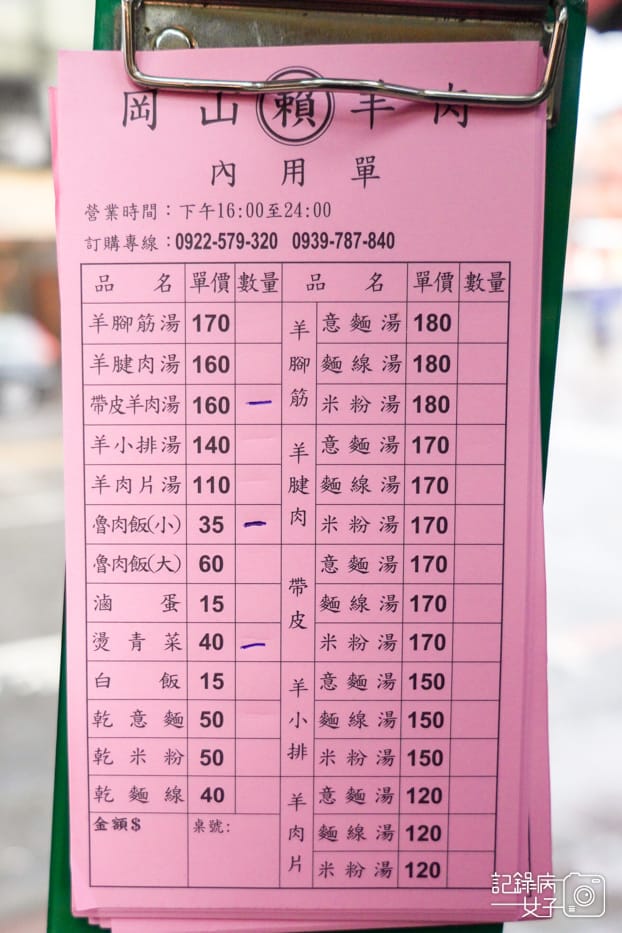 岡山賴羊肉
內用單
營業時間：下午16:00至24:00
訂購專線：0922-579-320 0939-787-840
品名 單價 數量 品名 單價 數量
羊腳筋湯 170 羊腳筋 意麵湯 180
羊腱肉湯 160 麵線湯 180
帶皮羊肉湯 160 一 米粉湯 180
羊小排湯 140 羊腱肉 意麵湯 170
羊肉片湯 110 麵線湯 170
魯肉飯(小) 35 一 米粉湯 170
魯肉飯(大) 60 帶皮 意麵湯 170
滷蛋 15 麵線湯 170
燙青菜 40 一 米粉湯 170
白飯 15 羊小排 意麵湯 150
乾意麵 50 麵線湯 150
乾米粉 50 米粉湯 150
乾麵線 40 羊肉片 意麵湯 120
金額$ 桌號: 麵線湯 120
米粉湯 120
記錄病
女子